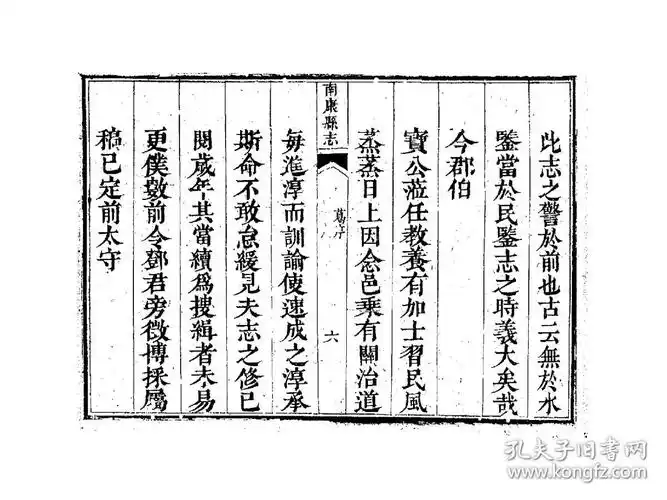 此志之警於前也古云無於水
鑒當於民鑒志之時義大矣哉
今郡伯
寶公蒞任教養有加士習民風
蒸蒸日上因念邑乘有關治道
南康縣志
序
六
每進淳而訓諭使速成之淳承
斯命不敢怠緩見夫志之修已
閱歲年其當續為搜緝者未易
更僕數前令鄧君旁徵博採屬
稿已定前太守
孔夫子旧书网
www.kongfz.com